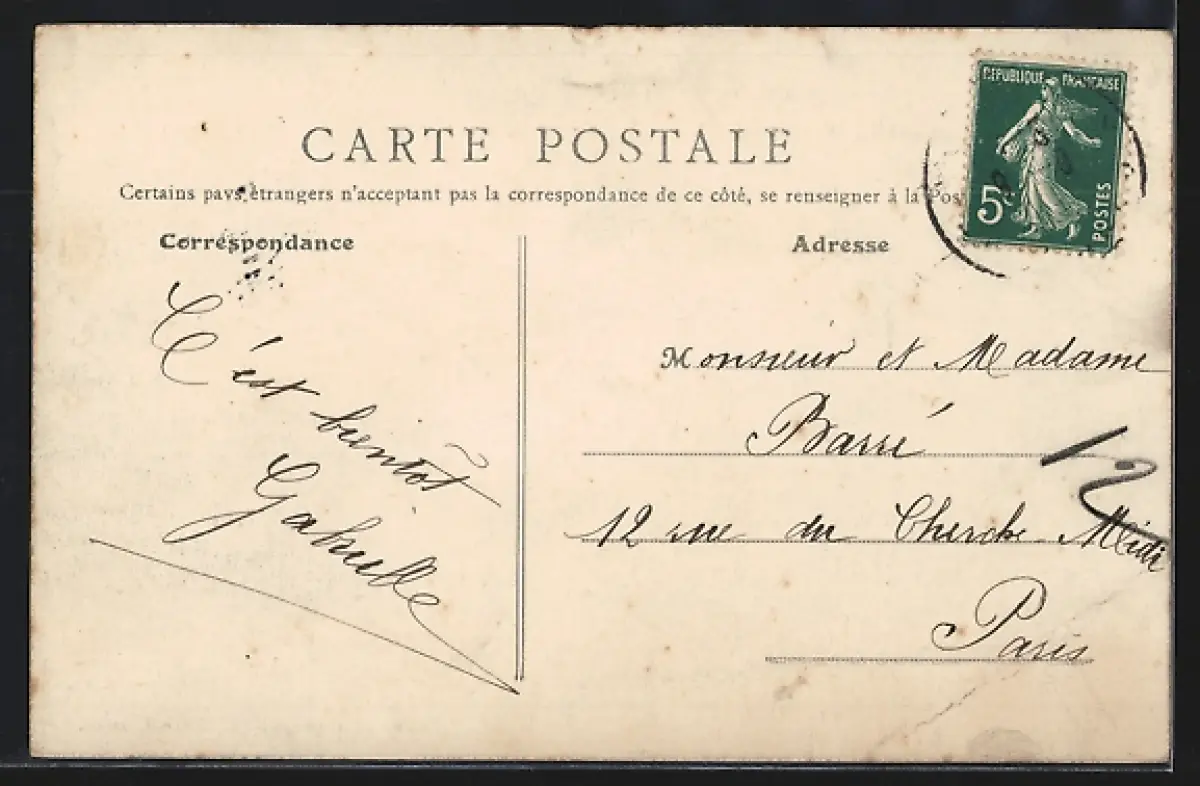 CARTE POSTALE
Certains pays étrangers n'acceptant pas la correspondance de ce côté, se renseigner à la Pos
Correspondance
C'est bientôt
Gabrielle
Adresse
REPUBLIQUE FRANÇAISE
5c
POSTES
Monsieur et Madame
Barré
12
12 rue du Cherche Midi
Paris